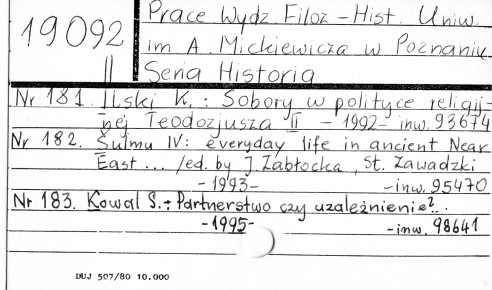 19092
II
Prace Wydz Filoz-Hist. Uniw.
im A. Mickiewicza w Poznaniu
Seria Historia
Nr 181. Ilski K.: Sobory w polityce religij-
nej Teodozjusza II - 1992- inw. 93674
Nr 182. Šulmu IV: everyday life in ancient Near
East ... /ed. by J. Zabłocka, St. Zawadzki
-1993- -inw. 95470
Nr 183. Kowal S.: Partnerstwo czy uzależnienie?..
-1995- -inw. 98641
DUJ 507/80 10.000